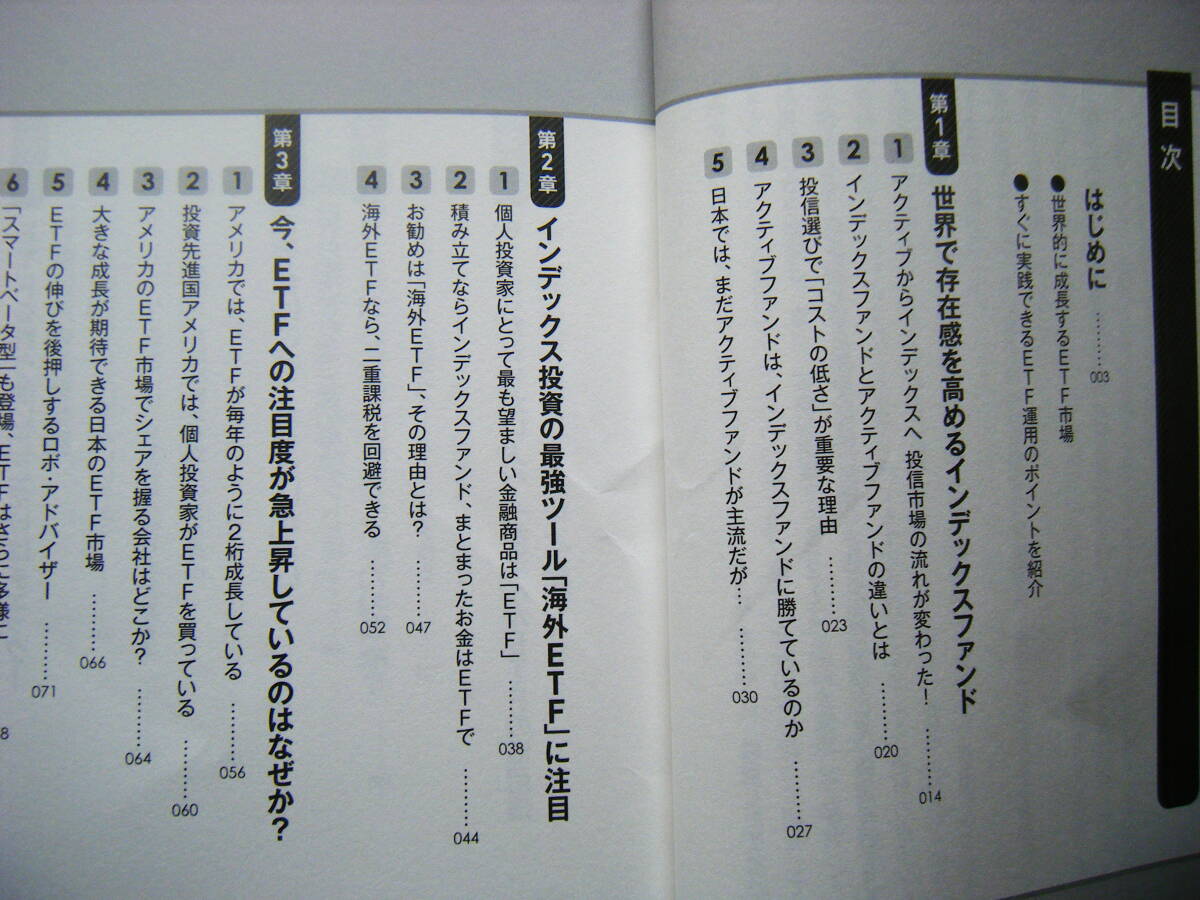 目次
はじめに ……… 003
●世界的に成長するETF市場
●すぐに実践できるETF運用のポイントを紹介
第1章 世界で存在感を高めるインデックスファンド
1 アクティブからインデックスへ 投信市場の流れが変わった! ……… 014
2 インデックスファンドとアクティブファンドの違いとは ……… 020
3 投信選びで「コストの低さ」が重要な理由 ……… 023
4 アクティブファンドは、インデックスファンドに勝てているのか ……… 027
5 日本では、まだアクティブファンドが主流だが… ……… 030
第2章 インデックス投資の最強ツール「海外ETF」に注目
1 個人投資家にとって最も望ましい金融商品は「ETF」 ……… 038
2 積み立てならインデックスファンド、まとまったお金はETFで ……… 044
3 お勧めは「海外ETF」、その理由とは? ……… 047
4 海外ETFなら、二重課税を回避できる ……… 052
第3章 今、ETFへの注目度が急上昇しているのはなぜか?
1 アメリカでは、ETFが毎年のように2桁成長している ……… 056
2 投資先進国アメリカでは、個人投資家がETFを買っている ……… 060
3 アメリカのETF市場でシェアを握る会社はどこか? ……… 064
4 大きな成長が期待できる日本のETF市場 ……… 066
5 ETFの伸びを後押しするロボ・アドバイザー ……… 071
6 「スマートベータ型」も登場、ETFはさらに多様に